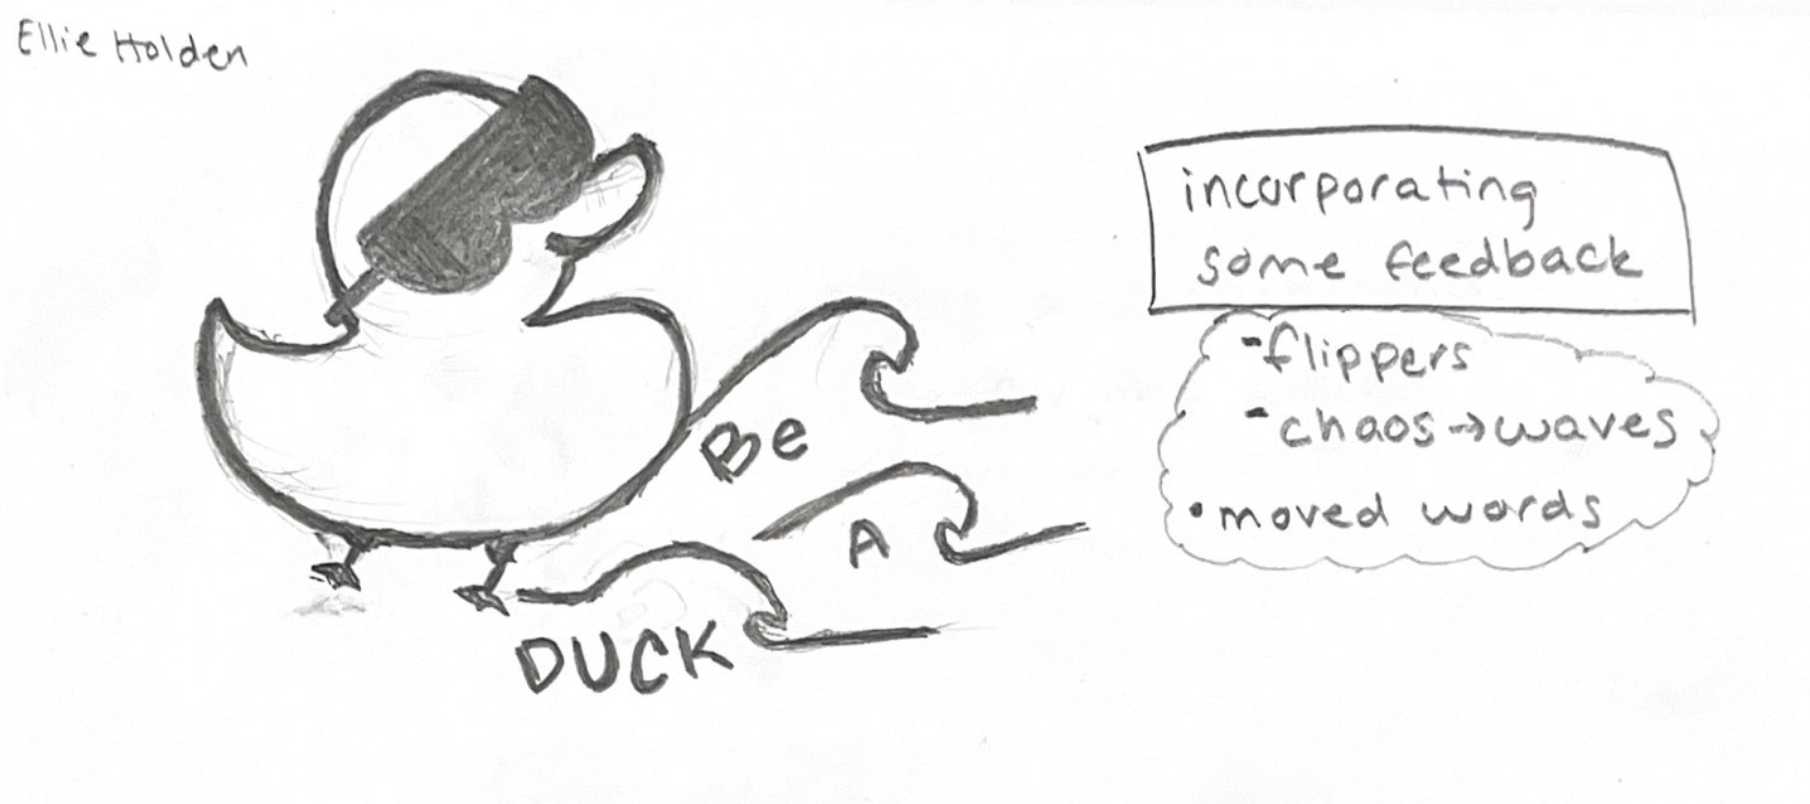 Ellie Holden
incorporating
some feedback
-flippers
-chaos→waves
•moved words
Be
A
DUCK